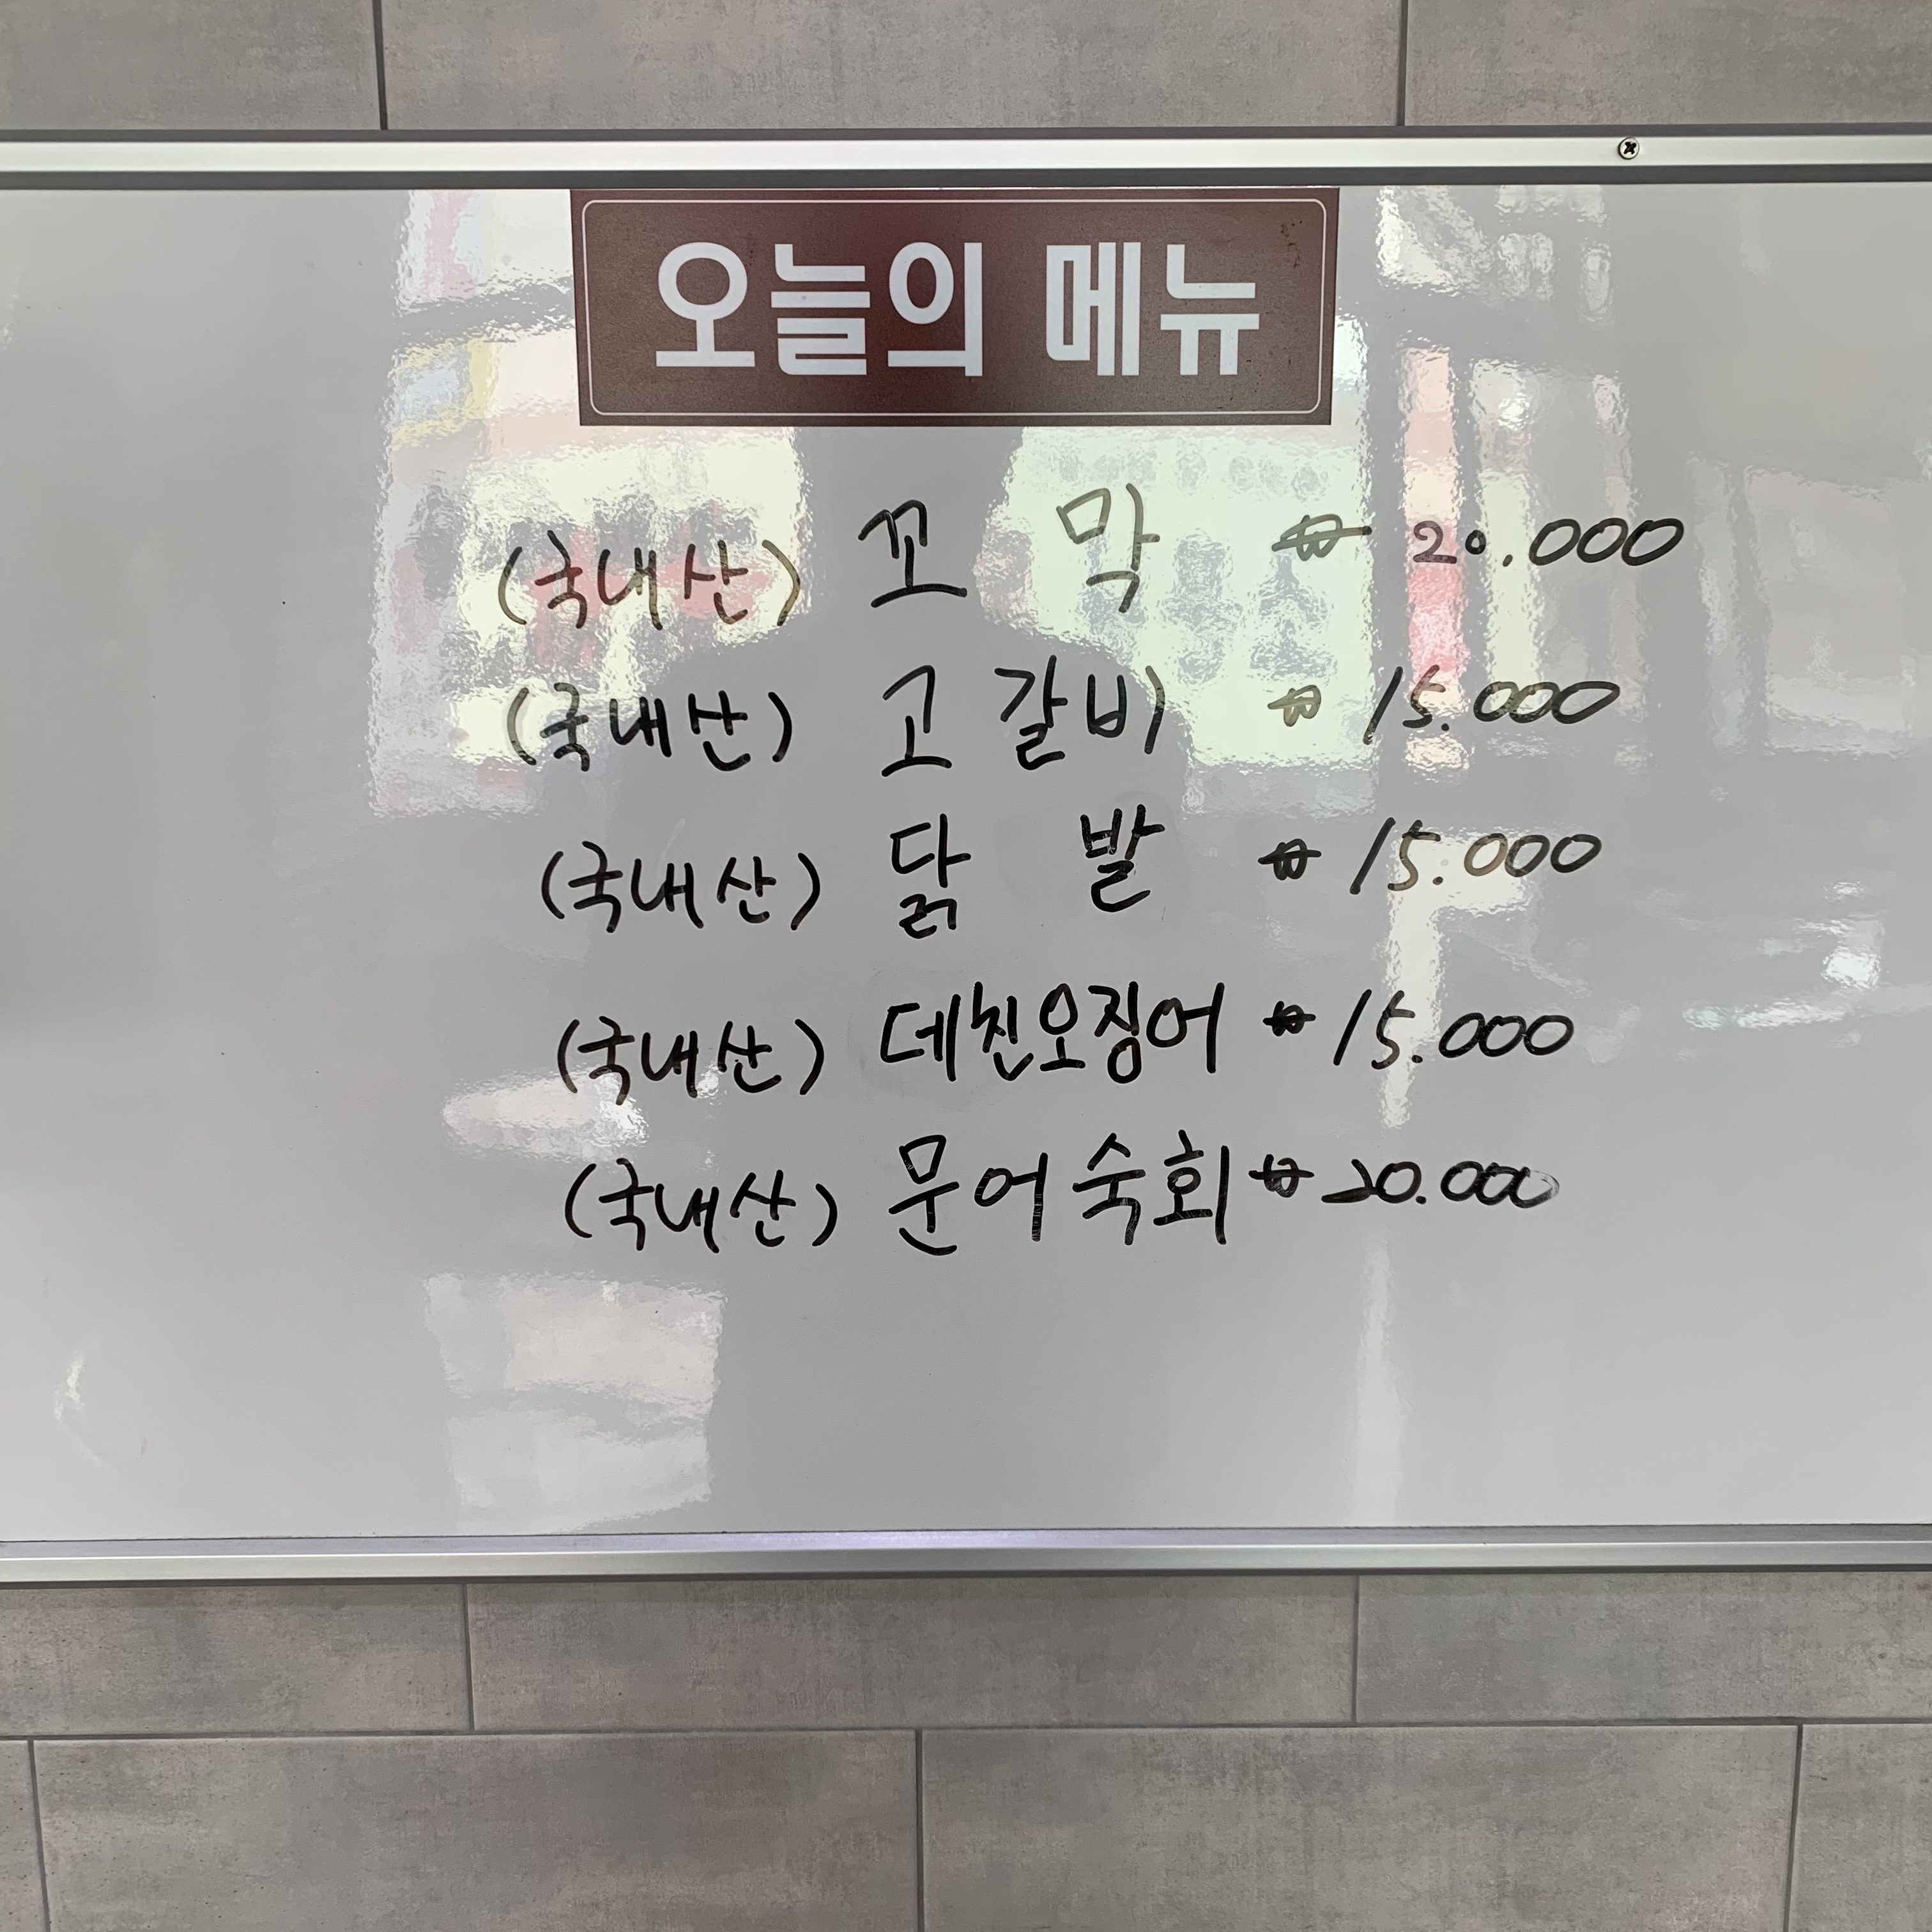 오늘의 메뉴
(국내산) 꼬 막 ₩ 20.000
(국내산) 고갈비 ₩ 15.000
(국내산) 닭 발 ₩ 15.000
(국내산) 데친오징어 ₩ 15.000
(국내산) 문어숙회 ₩ 20.000